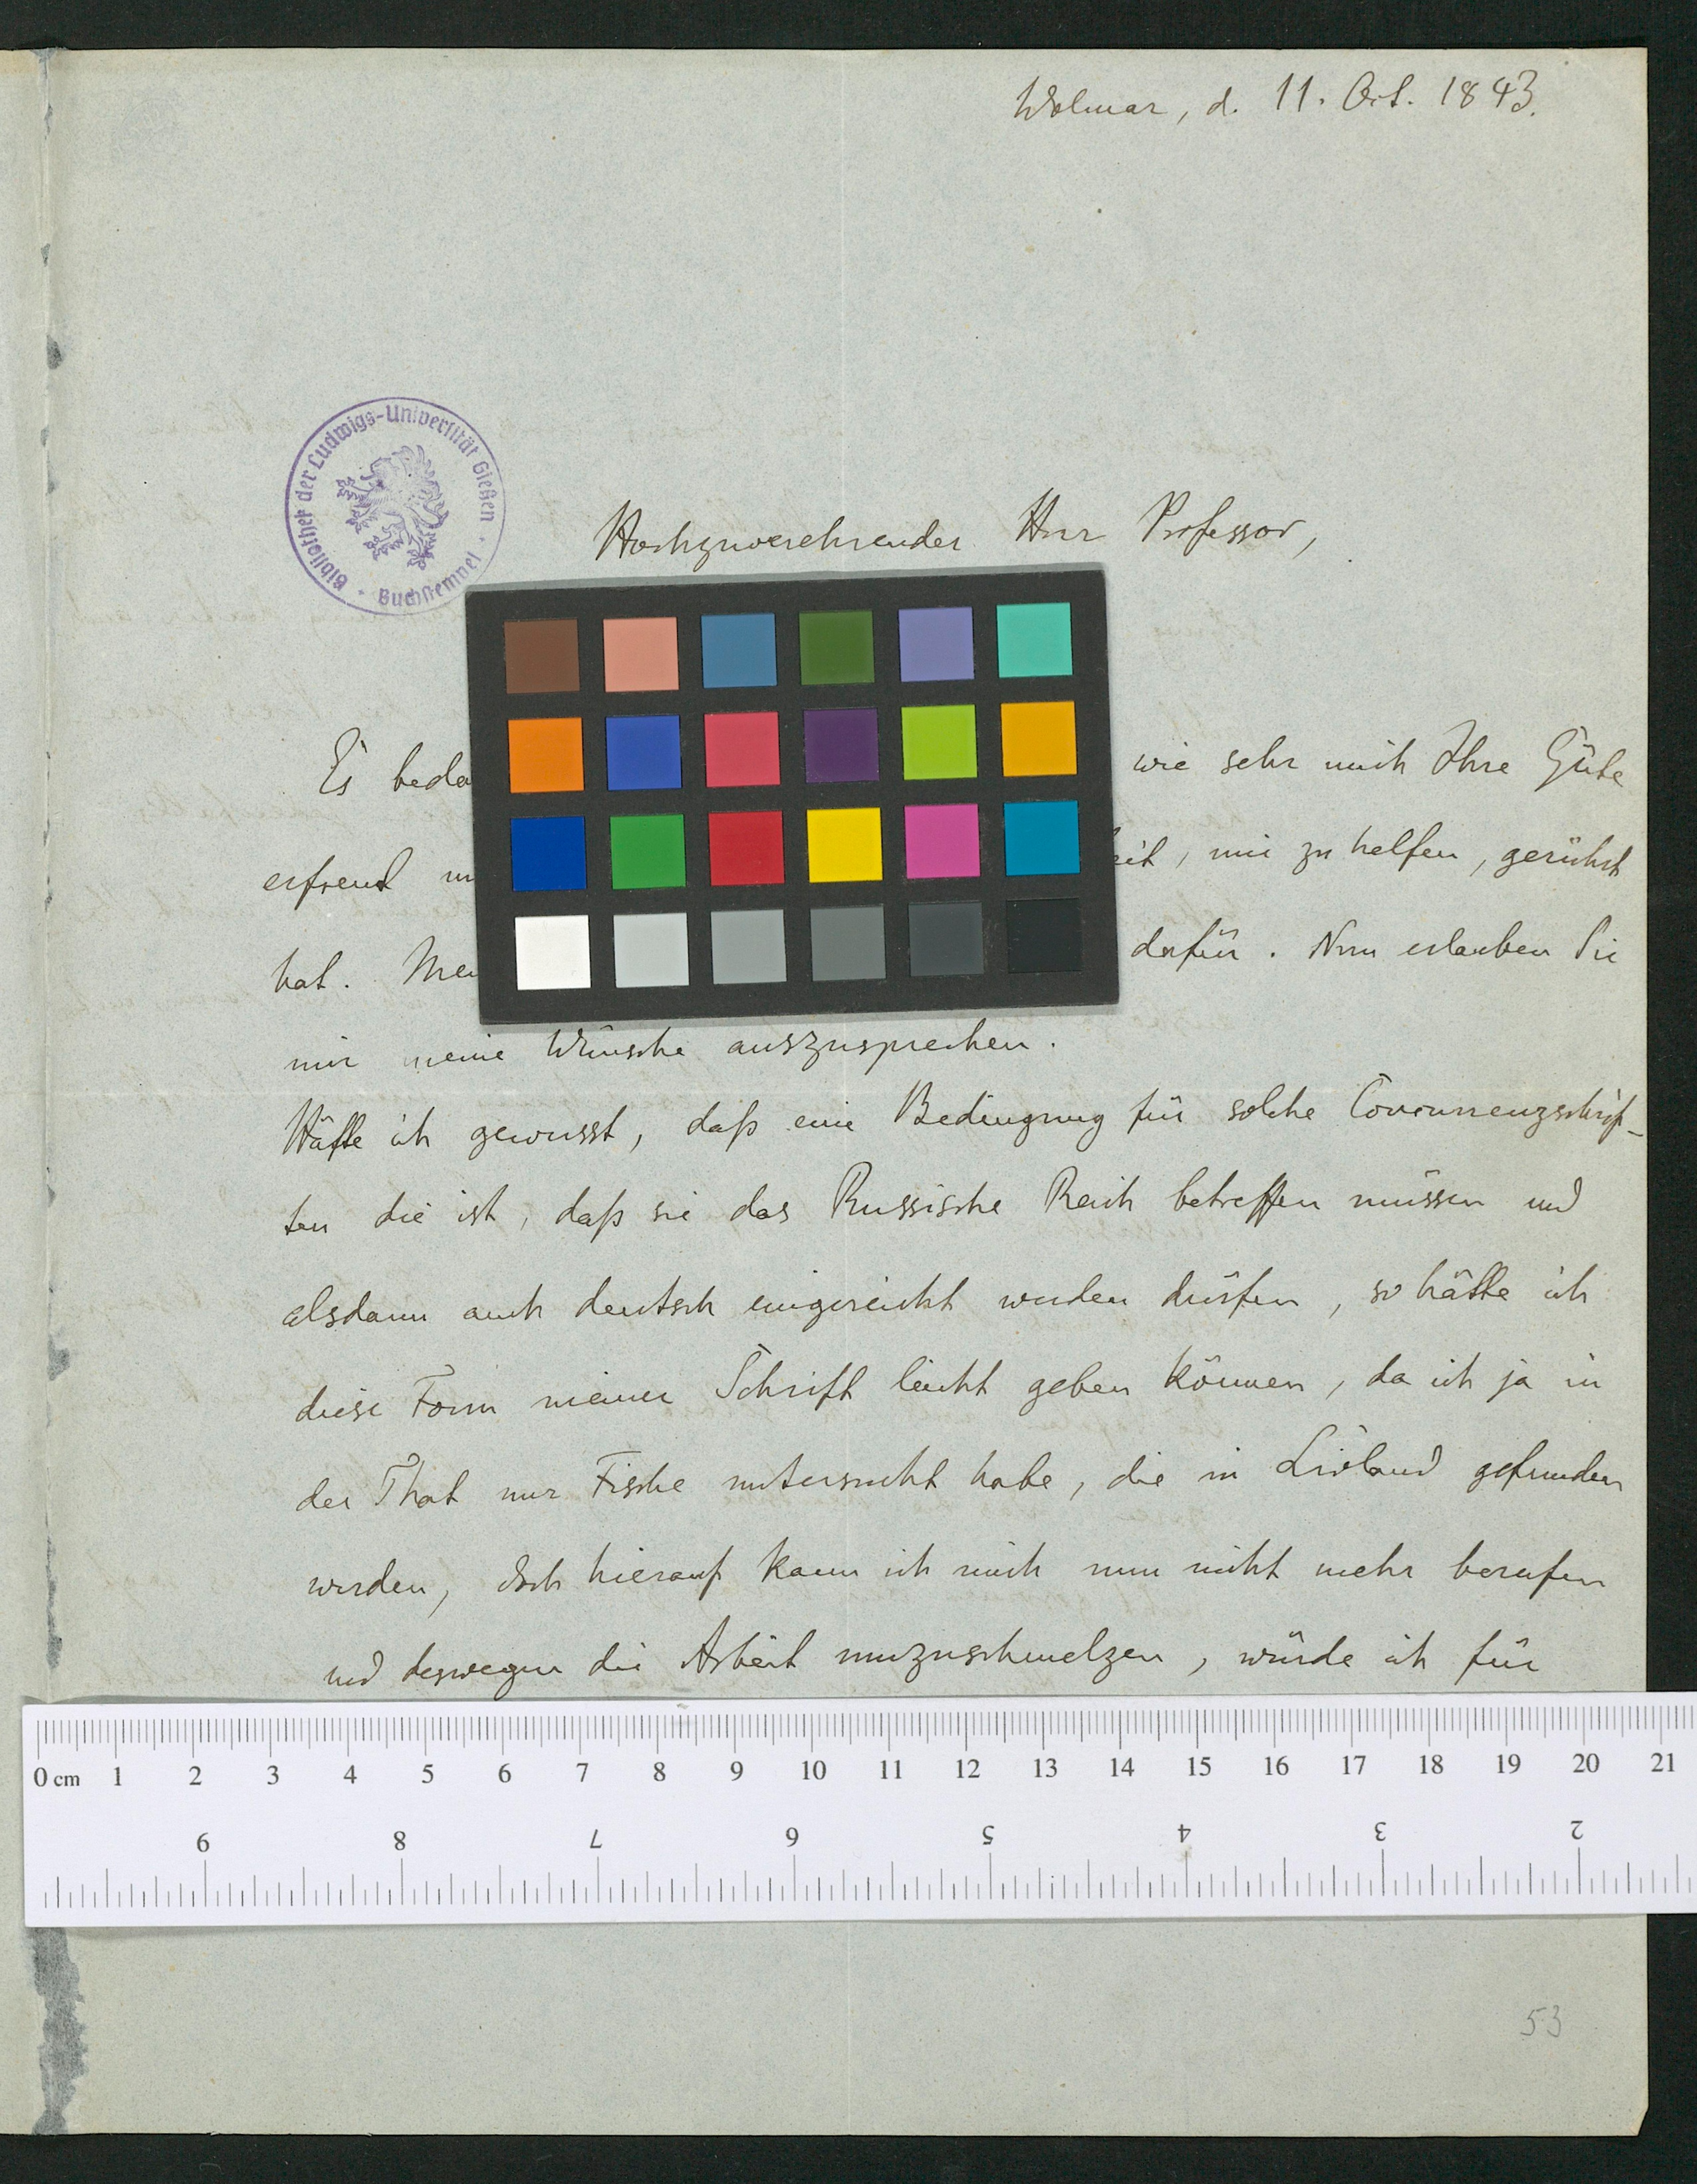 Wolmar, d. 11. Oct. 1843.
Bibliothek der Ludwigs-Universität Gießen · Buchstempel ·
Hochzuverehrender Herr Professor,
Es beda wie sehr mich Ihre Güte
erfreut mir zu helfen, gerührt
hat. Mei dafür. Nun erlauben Sie
mir meine Wünsche auszusprechen.
Hätte ich gewusst, daß eine Bedingung für solche Concurrenzschrif-
ten die ist, daß sie das Russische Reich betreffen müssen und
alsdann auch deutsch eingereicht werden dürfen, so hätte ich
diese Form meiner Schrift leicht geben können, da ich ja in
der That nur Fische untersucht habe, die in Livland gefunden
werden, doch hierauf kann ich mich nun nicht mehr berufen
und deswegen die Arbeit umzuschmelzen, würde ich für
0 cm 1 2 3 4 5 6 7 8 9 10 11 12 13 14 15 16 17 18 19 20 21
9 8 7 6 5 4 3 2
53